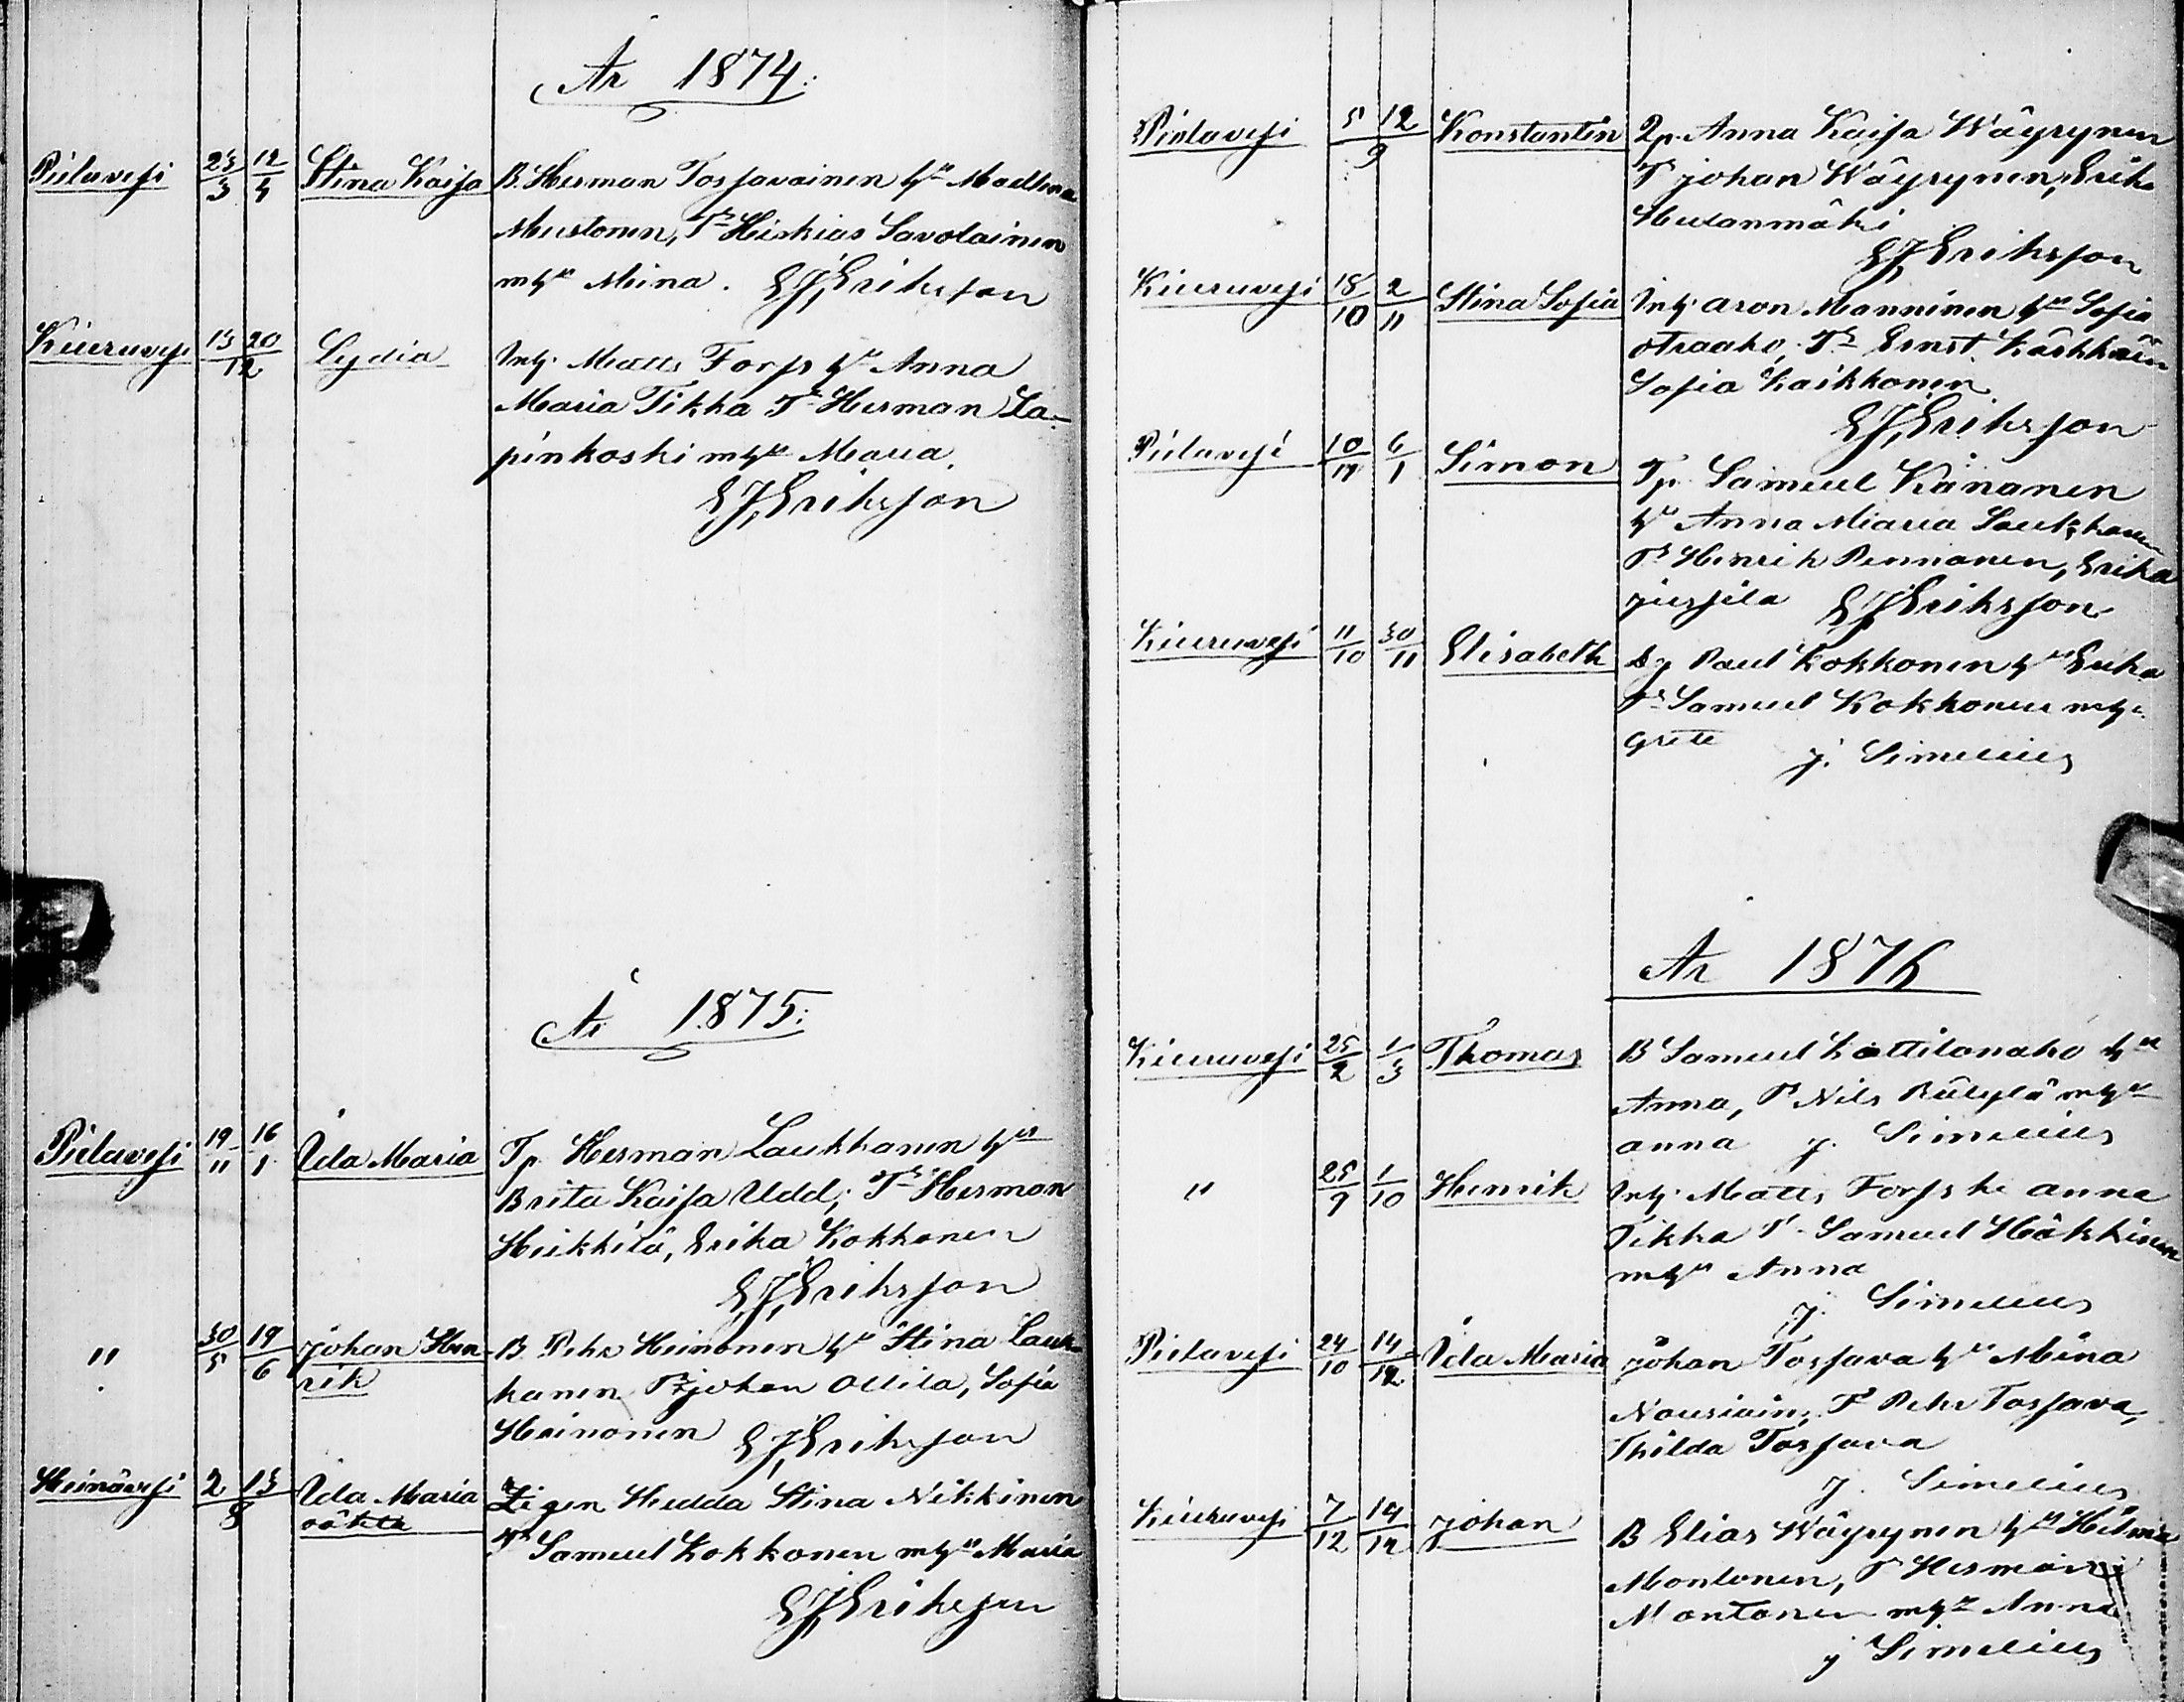 År 1874.
Pielavesi 23/3 12/4 Stina Kaisa B. Herman Tossavainen h:u Madlena
Mustonen, T: Hiskias Savolainen
m h:u Mina. E J Eriksson
Kiuruvesi 13 20/12 Lydia Inh: Matts Forss h:u Anna
Maria Tikka T: Herman La-
pinkoski m h:u Maria.
E J Eriksson
År 1875.
Pielavesi 19/11 16/1 Ida Maria Tp. Herman Laukkanen h:u
Brita Kaisa Udd; T: Herman
Heikkilä, Erika Kokkonen
E J Eriksson
" 30/5 19/6 Johan Hen- B. Pehr Heinonen h:u Stina Lauk-
rik kanen T: Johan Ollila, Sofia
Heinonen E J Eriksson
Heinävesi 2 13/8 Ida Maria Zigen Hedda Stina Nikkinen
oäkta T: Samuel Kokkonen m h:u Maria
E J Eriksson
Pielavesi 5 12/9 Konstantin Qp. Anna Kaisa Wäyrynen
T Johan Wäyrynen, Erika
Hutanmäki
E J Eriksson
Kiuruvesi 18/10 2/11 Stina Sofia Inh: Aron Manninen h:u Sofia
Otraaho, T: Ernst Kärkkäin
Sofia Kaikkonen
E J Eriksson
Pielavesi 10/12 6/1 Simon Tp. Samuel Känänen
h:u Anna Maria Laukkanen
T: Henrik Pennanen, Erika
Jussila E J Eriksson
Kiuruvesi 11/10 30/11 Elisabeth Paul Kokkonen h:u Erika
T: Samuel Kokkonen m h:u
Greta J. Simelius
År 1876
Kiuruvesi 25/2 1/3 Thomas B Samuel Kattilanaho h:u
Anna, T Nils Räisylä m h:u
Anna J. Simelius
" 25/9 1/10 Henrik Inh: Matts Forss h: Anna
Tikka T: Samuel Häkkinen
m h:u Anna
J. Simelius
Pielavesi 24/10 14/12 Ida Maria Johan Tossava h:u Mina
Nousiain; T Pehr Tossava,
Thilda Tossava
J. Simelius
Kiuruvesi 7/12 14/12 Johan B Elias Wäyrynen h:u Helmia
Montonen, T Herman
Montonen m h:u Anna
J Simelius